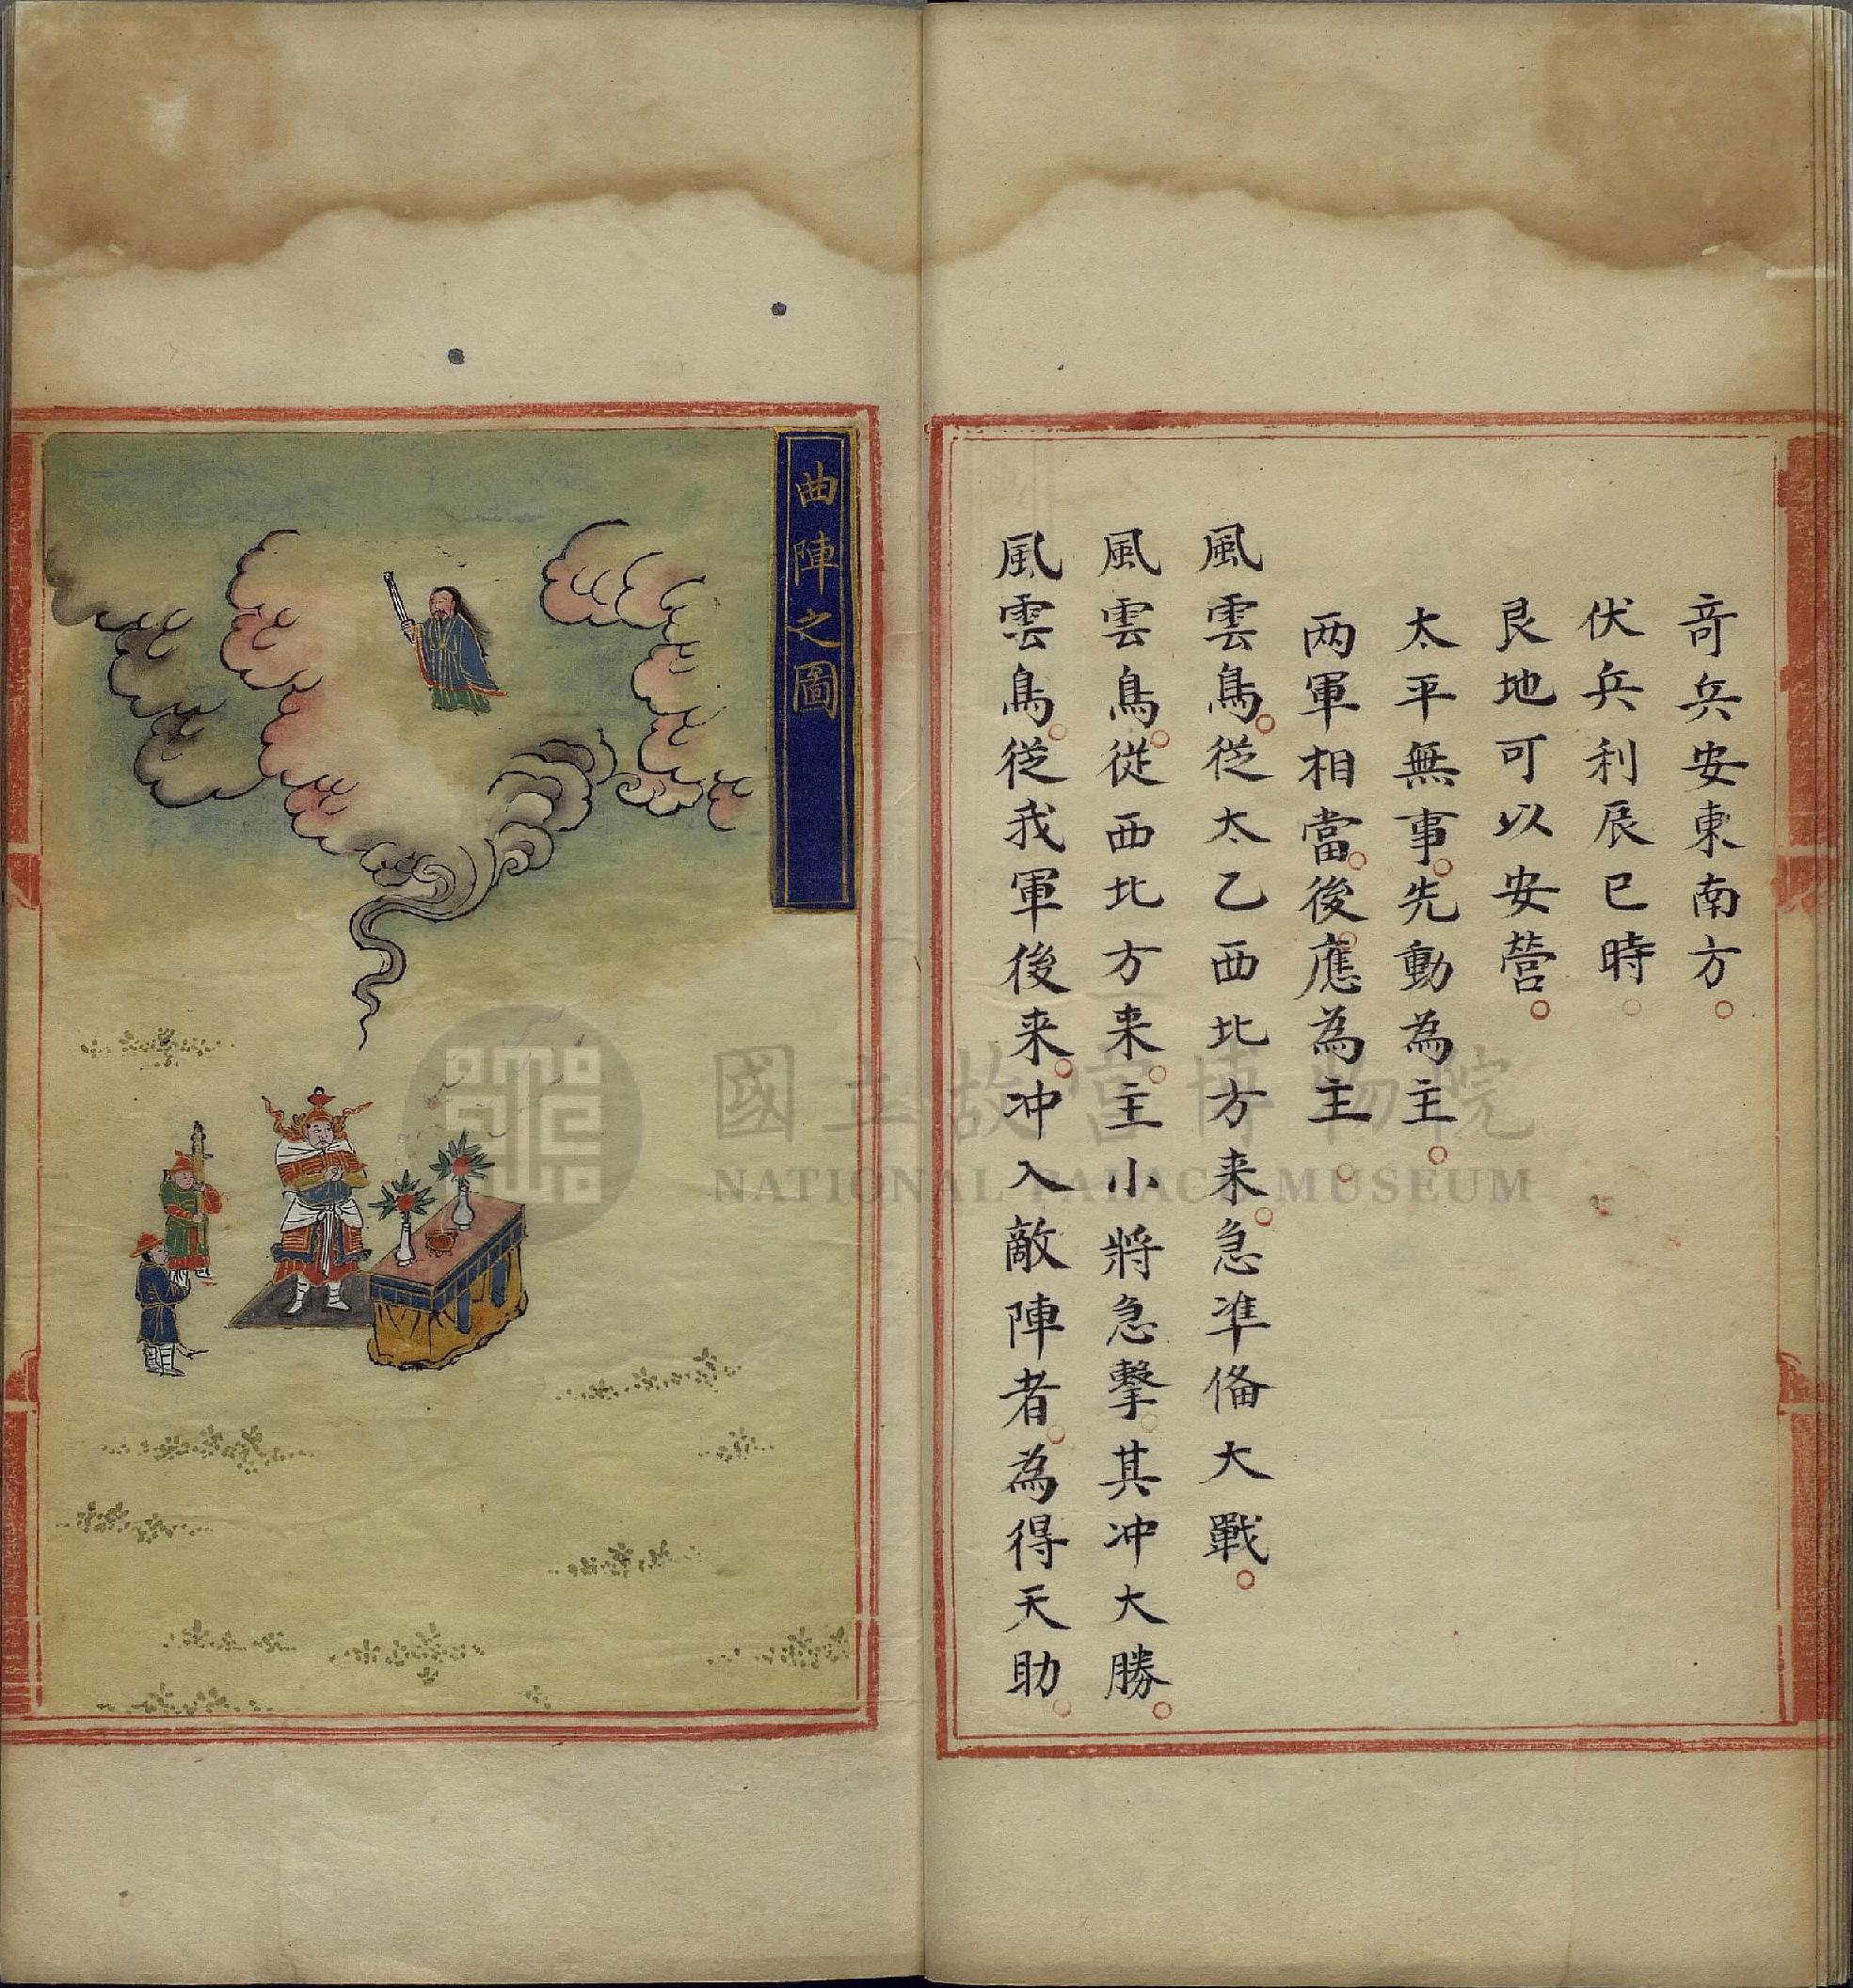 竒兵安東南方。
伏兵利辰巳時。
艮地可以安營。
太平無事。先動為主。
两軍相當。後。應為主。
風雲鳥。從太乙西北方来。急準俻大戰。
風雲鳥。從西北方来。主小將急擊。其冲大勝。
風雲鳥。從我軍後来。冲入敵陣者。為得天助。
曲陣之圖
國立故宮博物院
NATIONAL PALACE MUSEUM